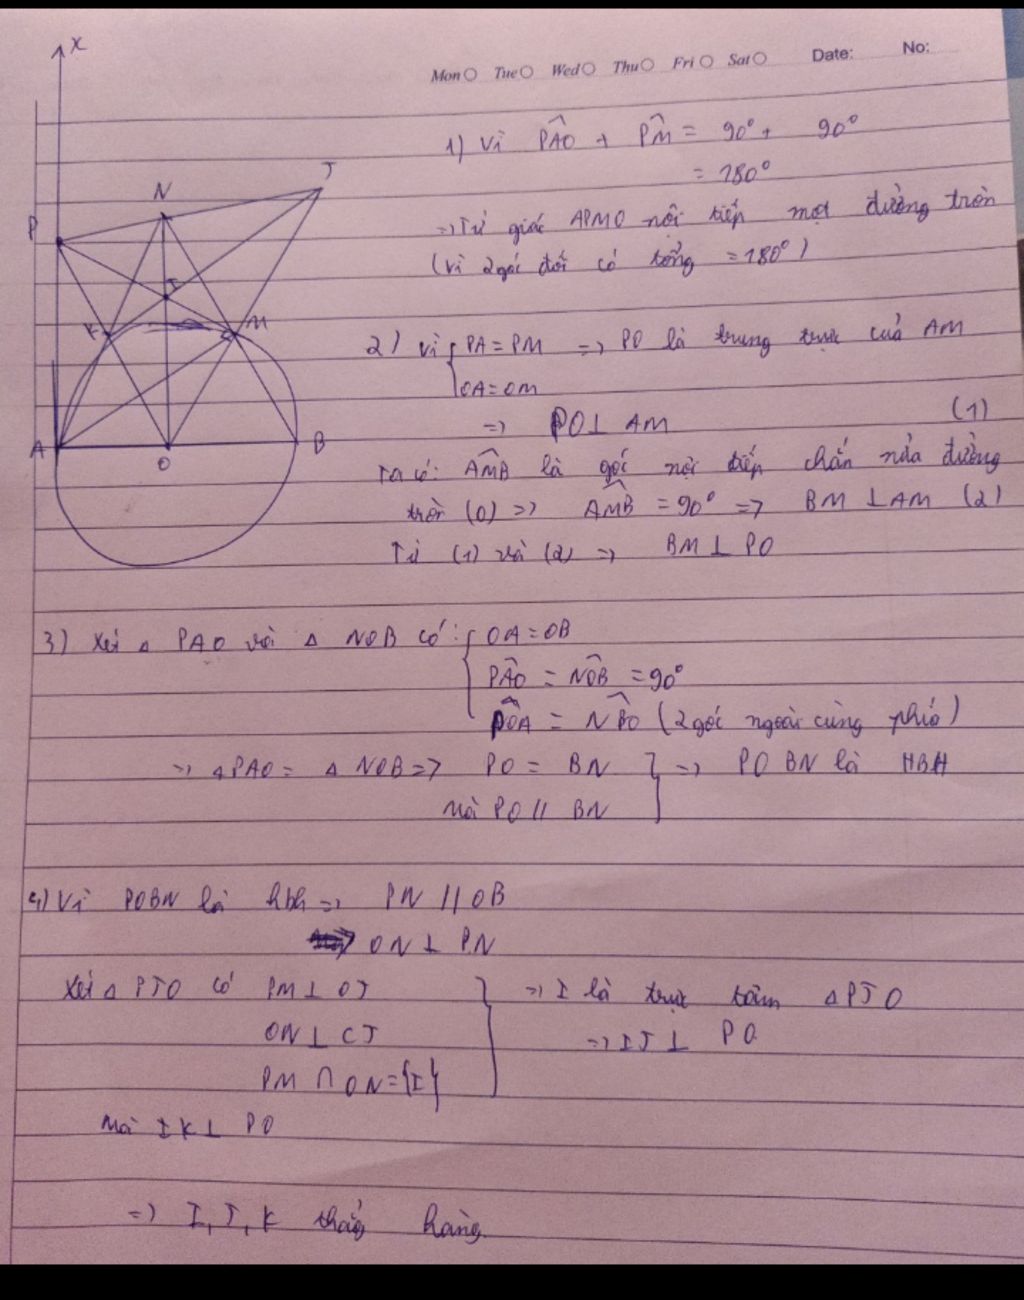 Mon Tue Wed Thu Fri Sat Date: No:
x
J
N
P
I
K
M
A
O
B
1) Vì PÂO + PM̂ = 90° + 90°
= 180°
=> Tứ giác APMO nội tiếp một đường tròn
(vì 2 góc đối có tổng = 180°)
2) Vì { PA = PM => PO là trung trực của AM
OA = OM
=> PO ⊥ AM (1)
Ta có: AMB là góc nội tiếp chắn nửa đường
tròn (O) => AMB = 90° => BM ⊥ AM (2)
Từ (1) và (2) => BM ⊥ PO
3) Xét Δ PAO và Δ NOB có: { OA = OB
PAO = NOB = 90°
POA = NBO (2 góc ngoài cùng phía)
=> Δ PAO = Δ NOB => PO = BN } => POBN là HBH
Mà PO // BN
4) Vì POBN là hbh => PN // OB
=> ON ⊥ PN
Xét Δ PJO có PM ⊥ OJ } => I là trực tâm Δ PJO
ON ⊥ CJ => IJ ⊥ PO
PM ∩ ON = {I}
Mà IK ⊥ PO
=> I, J, K thẳng hàng.